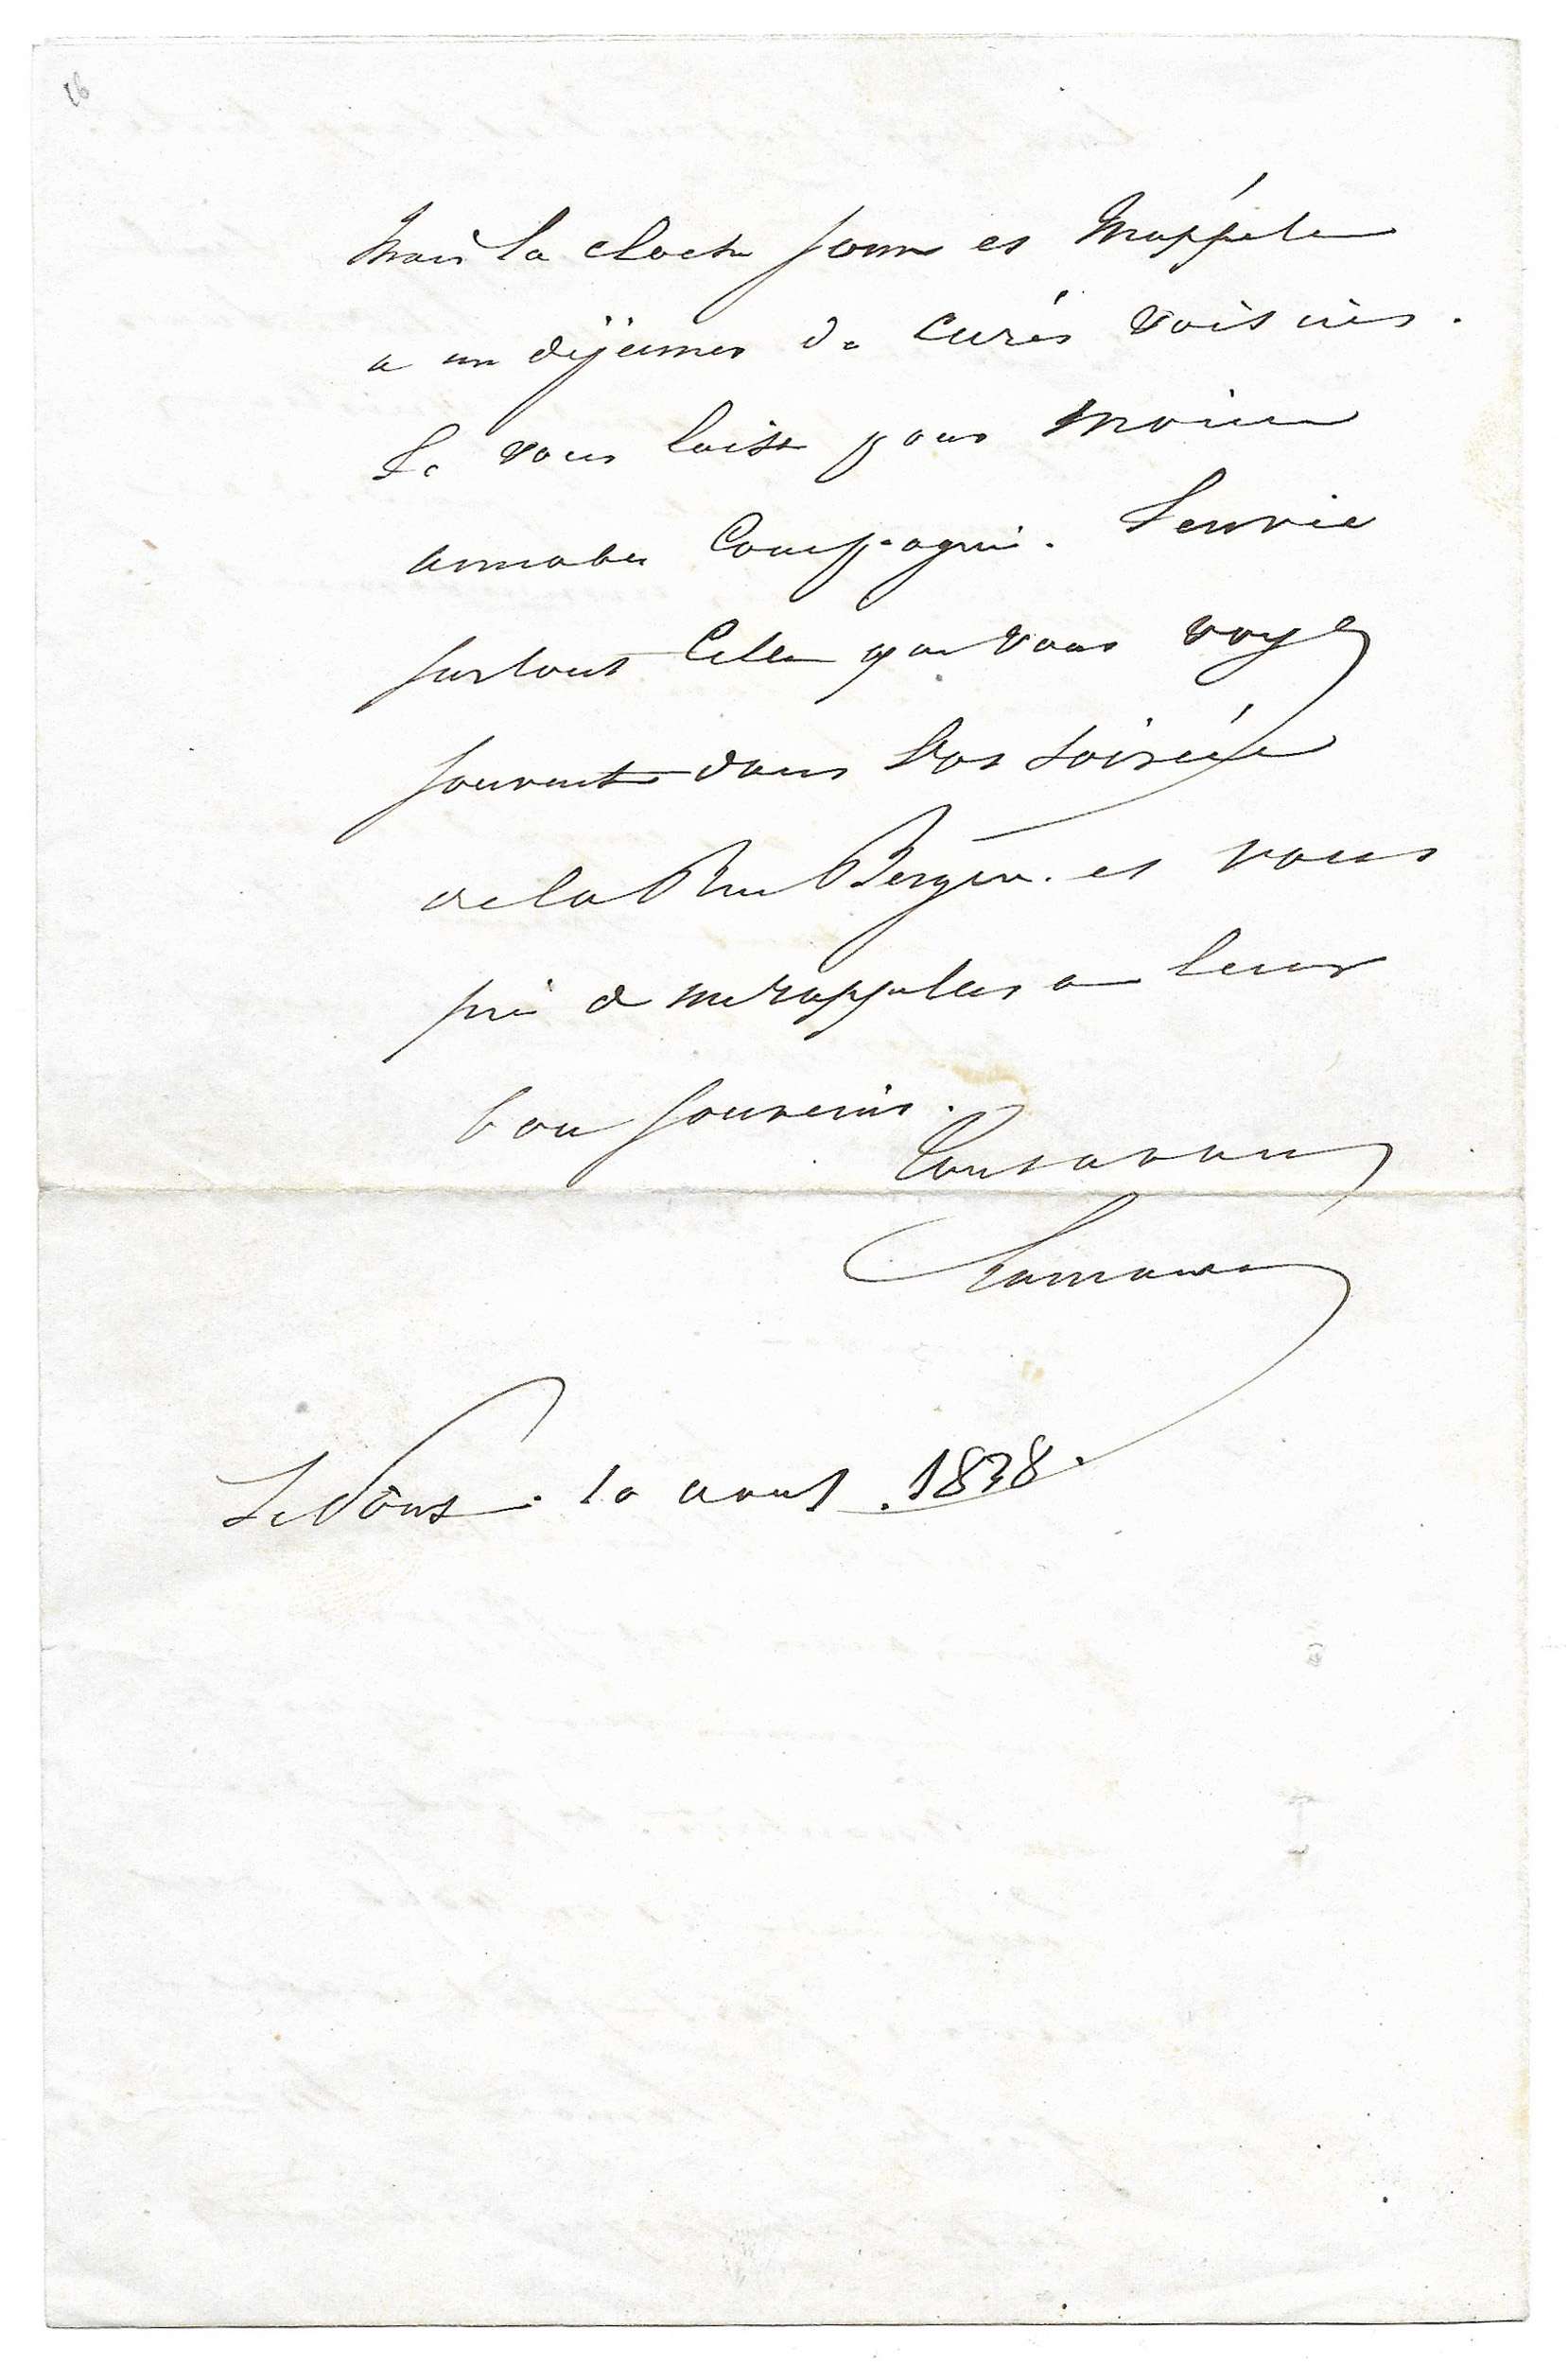 16
Mais la cloche sonne et m'appelle
a un déjeuner de Curés voisins.
Je vous laisse pour moins
aimable Compagnie. J'envie
surtout Celle que vous voyez
souvent dans vos soirées
de la Rue Bergère et vous
prie de me rappeler a leur
bon souvenir.
Lamartine
St Point. 10 aout 1838.